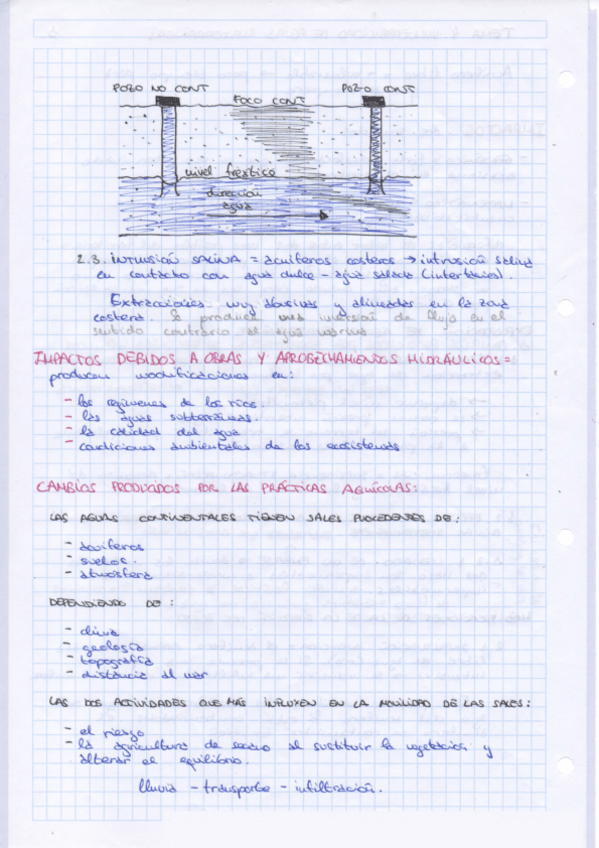 POZO NO CONT
FOCO CONT
POZO CONT
nivel freático
dirección
agua
2.3. INTRUSIÓN SALINA = acuíferos costeros → intrusión salina
en contacto con agua dulce - agua salada (interfacies).
Extracciones muy abusivas y alineadas en la zona
costera. Se produce una inversión de flujo en el
sentido contrario al agua marina
IMPACTOS DEBIDOS A OBRAS Y APROBECHAMIENTOS HIDRÁULICOS =
producen modificaciones en:
- los regímenes de los ríos.
- las aguas subterráneas.
- la calidad del agua
- condiciones ambientales de los ecosistemas
CAMBIOS PRODUCIDOS POR LAS PRÁCTICAS AGRÍCOLAS:
LAS AGUAS CONTINENTALES TIENEN SALES PROCEDENTES DE:
- acuíferos
- suelos.
- atmósfera
DEPENDIENDO DE:
- clima
- geología
- topografía
- distancia al mar
LAS DOS ACTIVIDADES QUE MÁS INFLUYEN EN LA MOVILIDAD DE LAS SALES:
- el riesgo
- la agricultura de secano al sustituir la vegetación y
alterar el equilibrio.
lluvia - transporte - infiltración.